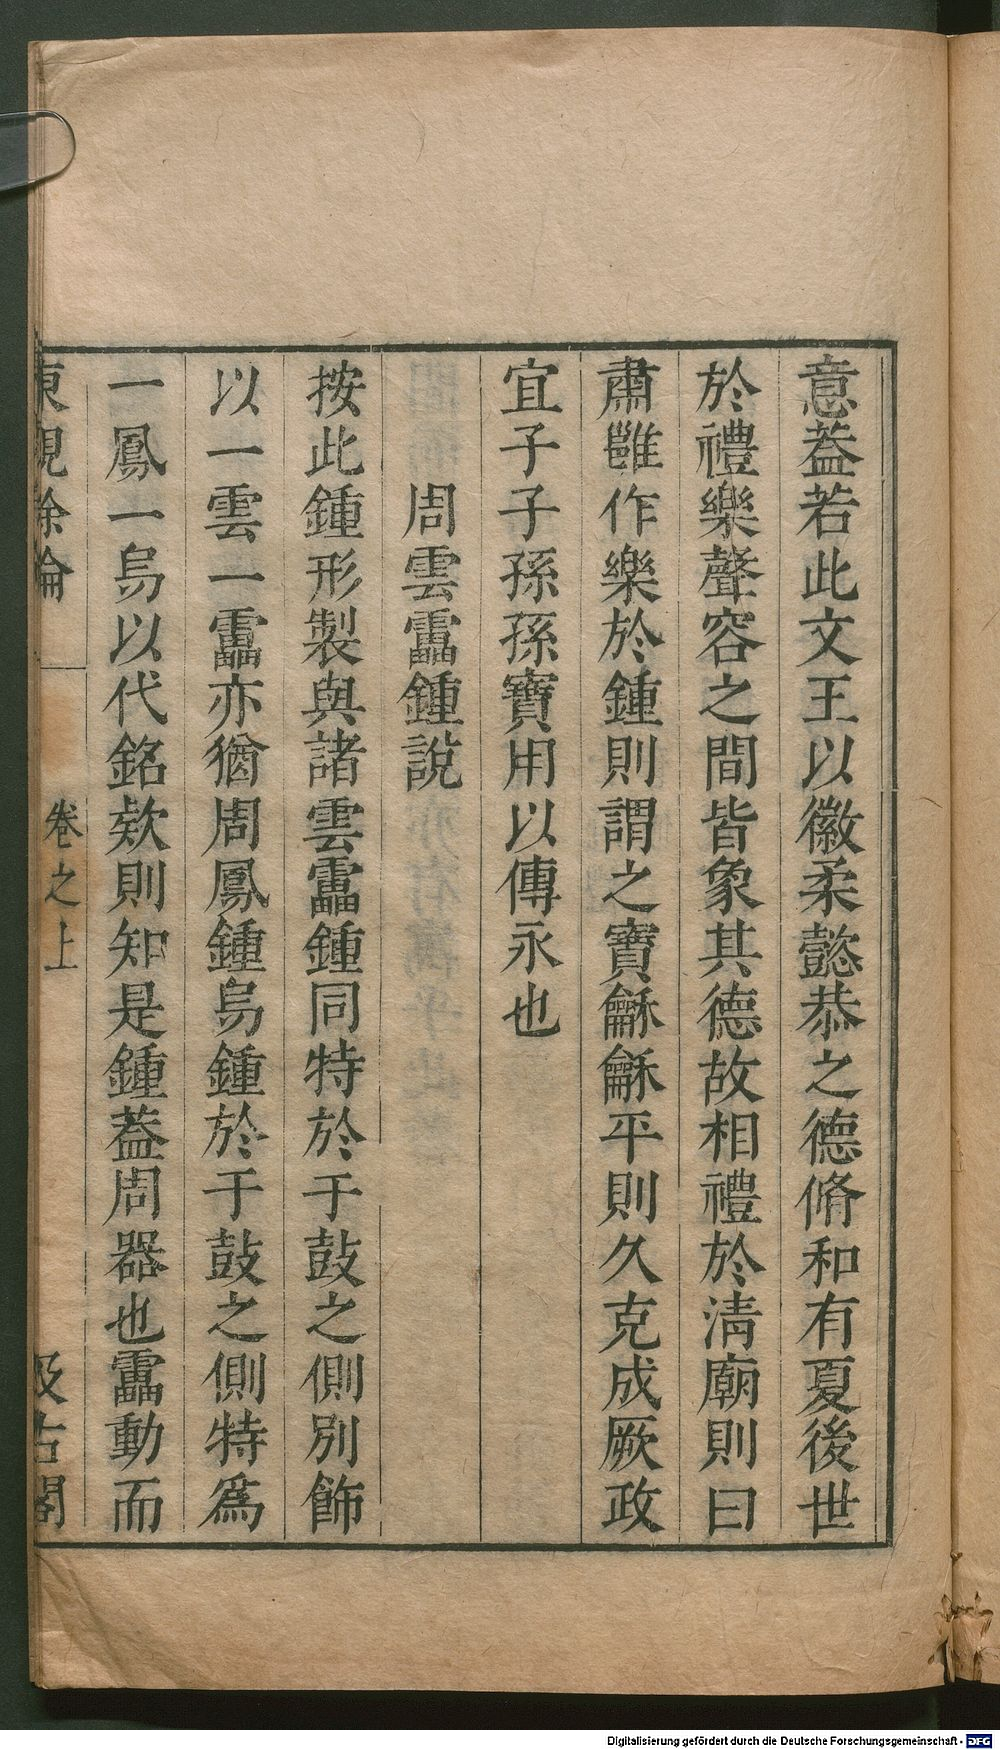 意葢若此文王以徽柔懿恭之德脩和有夏後世
於禮樂聲容之間皆象其德故相禮於淸廟則曰
肅雝作樂於鍾則謂之寶龢龢平則久克成厥政
宜子子孫孫寶用以傳永也
周雲靁鍾說
按此鍾形製與諸雲靁鍾同特於于鼓之側別飾
以一雲一靁亦猶周鳳鍾舄鍾於于鼓之側特爲
一鳳一舄以代銘欵則知是鍾葢周器也靁動而
東觀餘論 卷之上 汲古閣
Digitalisierung gefördert durch die Deutsche Forschungsgemeinschaft - DFG